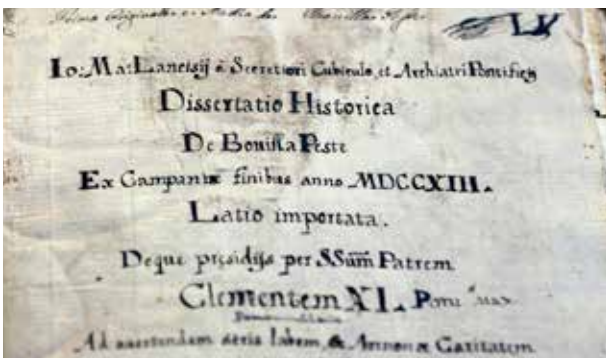 Io: Ma: Lancisij à Secretiori Cubiculo, et Archiatri Pontificij
Dissertatio Historica
De Bovilla Peste
Ex Campaniæ finibus anno MDCCXIII.
Latio importata.
Deque præsidijs per SSum̃ Patrem
Clementem XI. Pont. Max.
Ad avertendam aeris labem, & Annonæ Caritatem